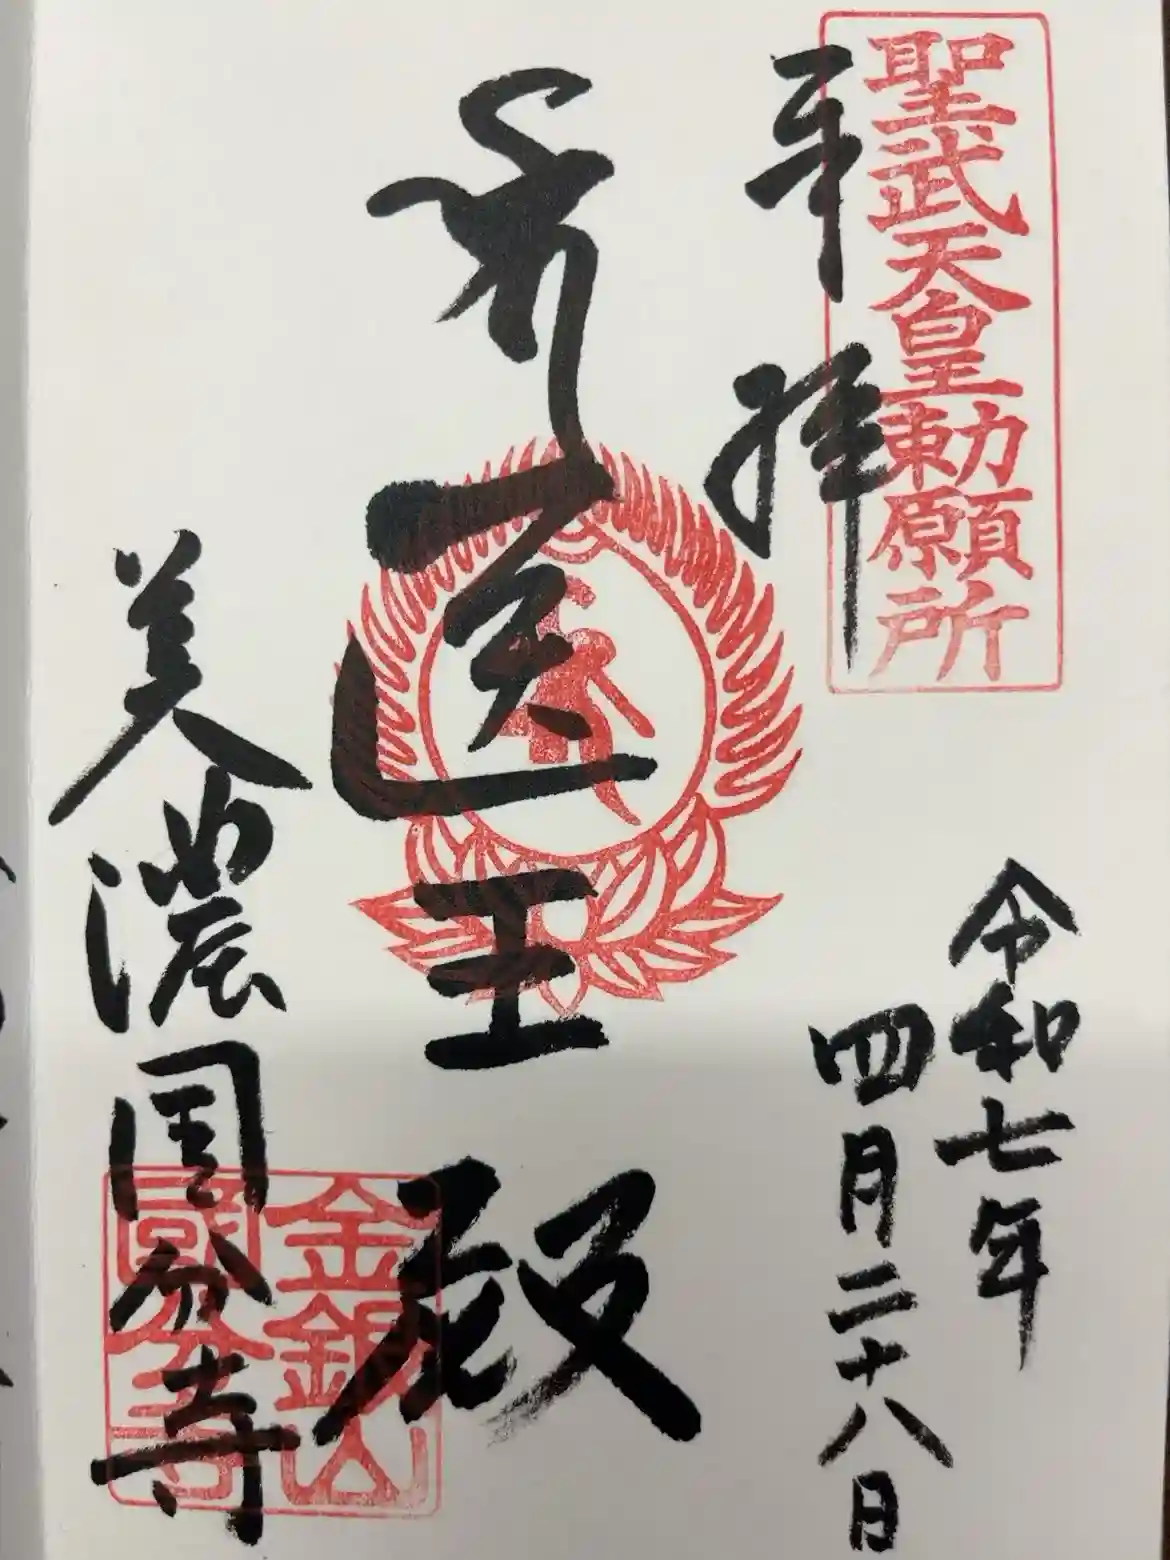 聖武天皇勅願所
奉拝
令和七年
四月二十八日
医王殿
美濃国分寺
金銀山
國分寺